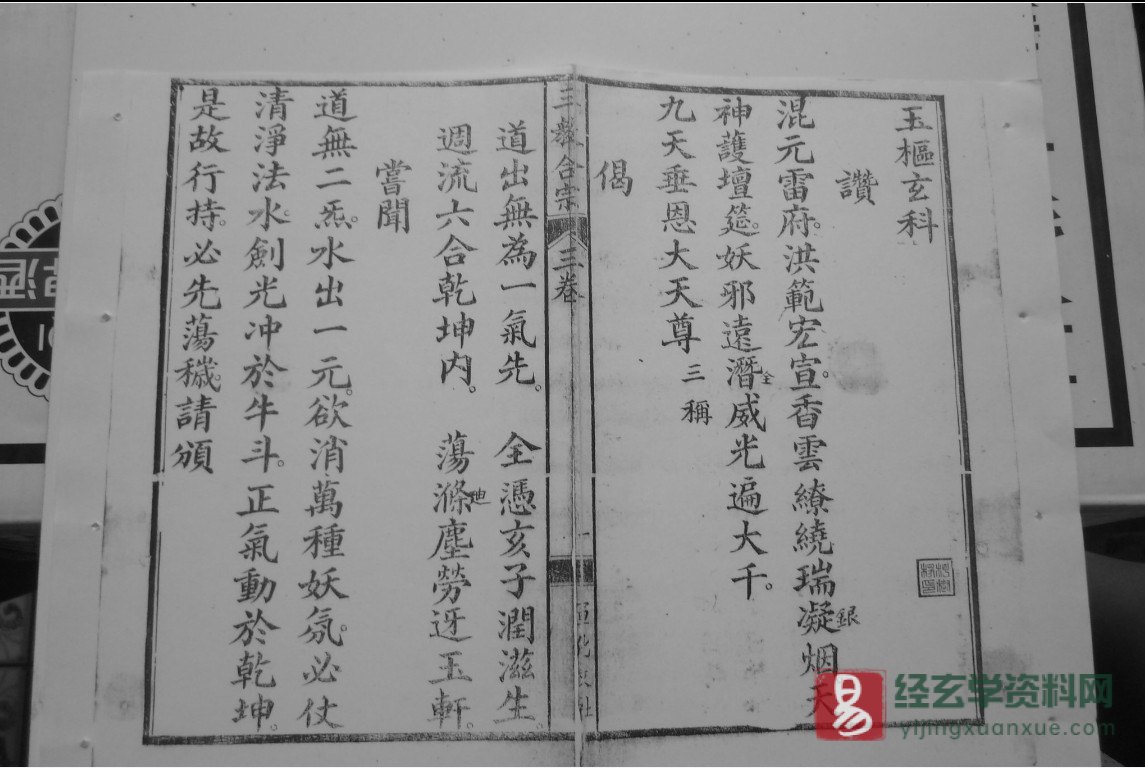 玉樞玄科
讚
混元雷府。洪範宏宣。香雲繚繞瑞凝烟天
銀
神護壇筵。妖邪遠潛威光遍大千。
全
九天垂恩大天尊三稱
偈
三教合宗 三卷 一
道出無為一氣先。 全憑亥子潤滋生。
週流六合乾坤内。 蕩滌塵勞迓玉軒。
迪
嘗聞
道無二炁。水出一元。欲消萬種妖氛。必仗
清淨法水。劍光冲於牛斗。正氣動於乾坤。
是故行持。必先蕩穢。請頒
易
经玄学资料网
yijingxuanxue.com